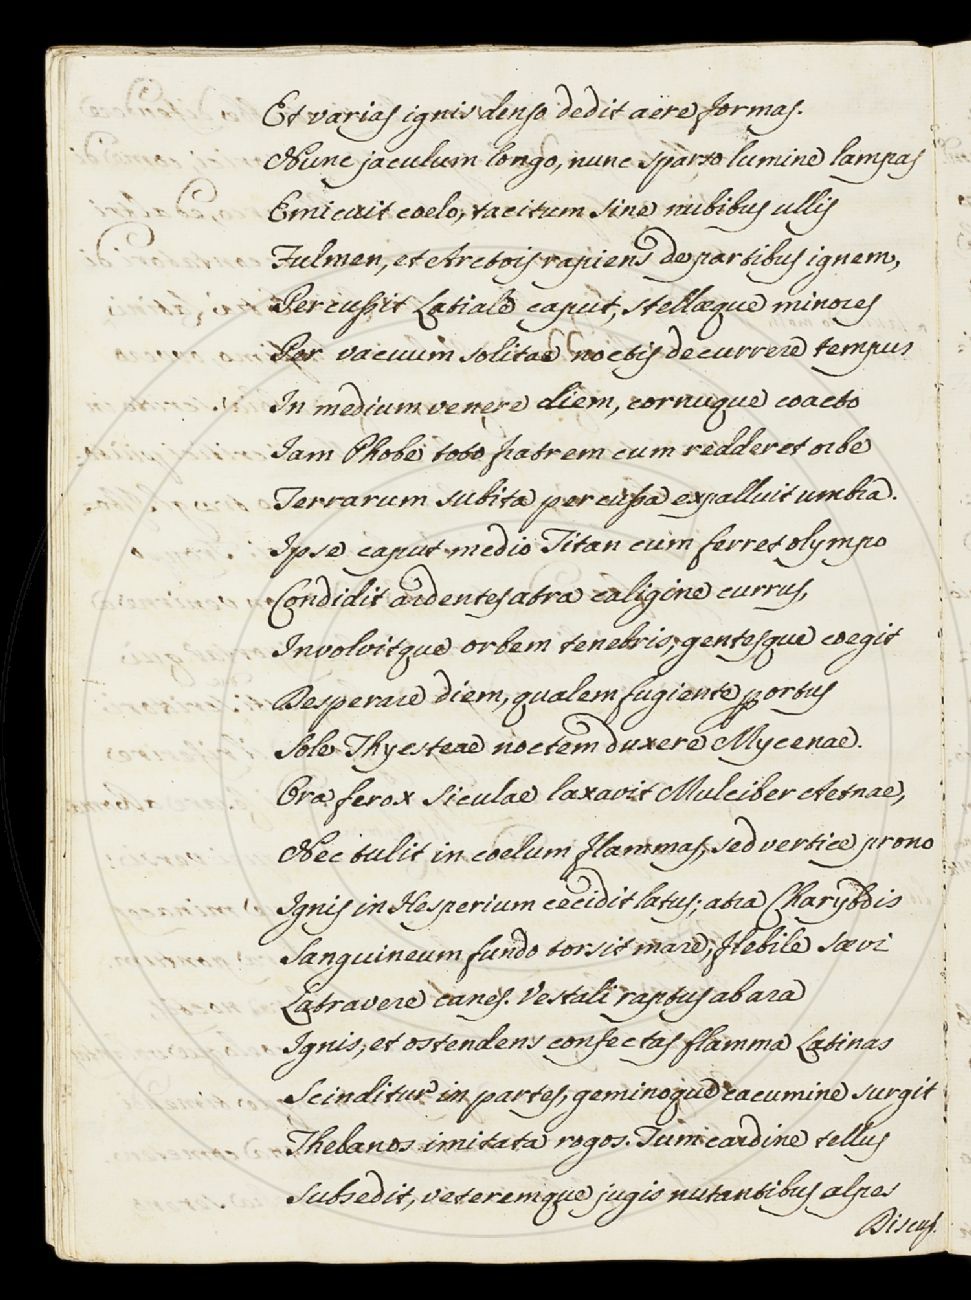 Et varias ignis denso dedit aëre formas.
Nunc jaculum longo, nunc sparso lumine lampas
Emicuit coelo, tacitum sine nubibus ullis
Fulmen, et Arctois rapiens de partibus ignem,
Percussit Latiale caput, stellæque minores
Per vacuum solitae noctis decurrere tempus
In medium venere diem, cornuque coacto
Iam Phobe toto fratrem cum redderet orbe
Terrarum subita percussa expalluit umbra.
Ipse caput medio Titan cum ferret olympo
Condidit ardentes atra caligine currus,
Involvitque orbem tenebris, gentesque coegit
Desperare diem, qualem fugiente portus
Sole Thyesteae noctem duxere Mycenae.
Ora ferox Siculae laxavit Mulciber Aetnae,
Nec tulit in coelum flammas, sed vertice prono
Ignis in Hesperium cecidit latus; atra Charybdis
Sanguineum fundo torsit mare; flebile sævi
Latravere canes. Vestali raptus ab ara
Ignis, et ostendens confectas flamma Latinas
Scinditur in partes, geminoque cacumine surgit
Thebanos imitata rogos. Tum cardine tellus
Subsedit, veteremque jugis nutantibus alpes
Discus.